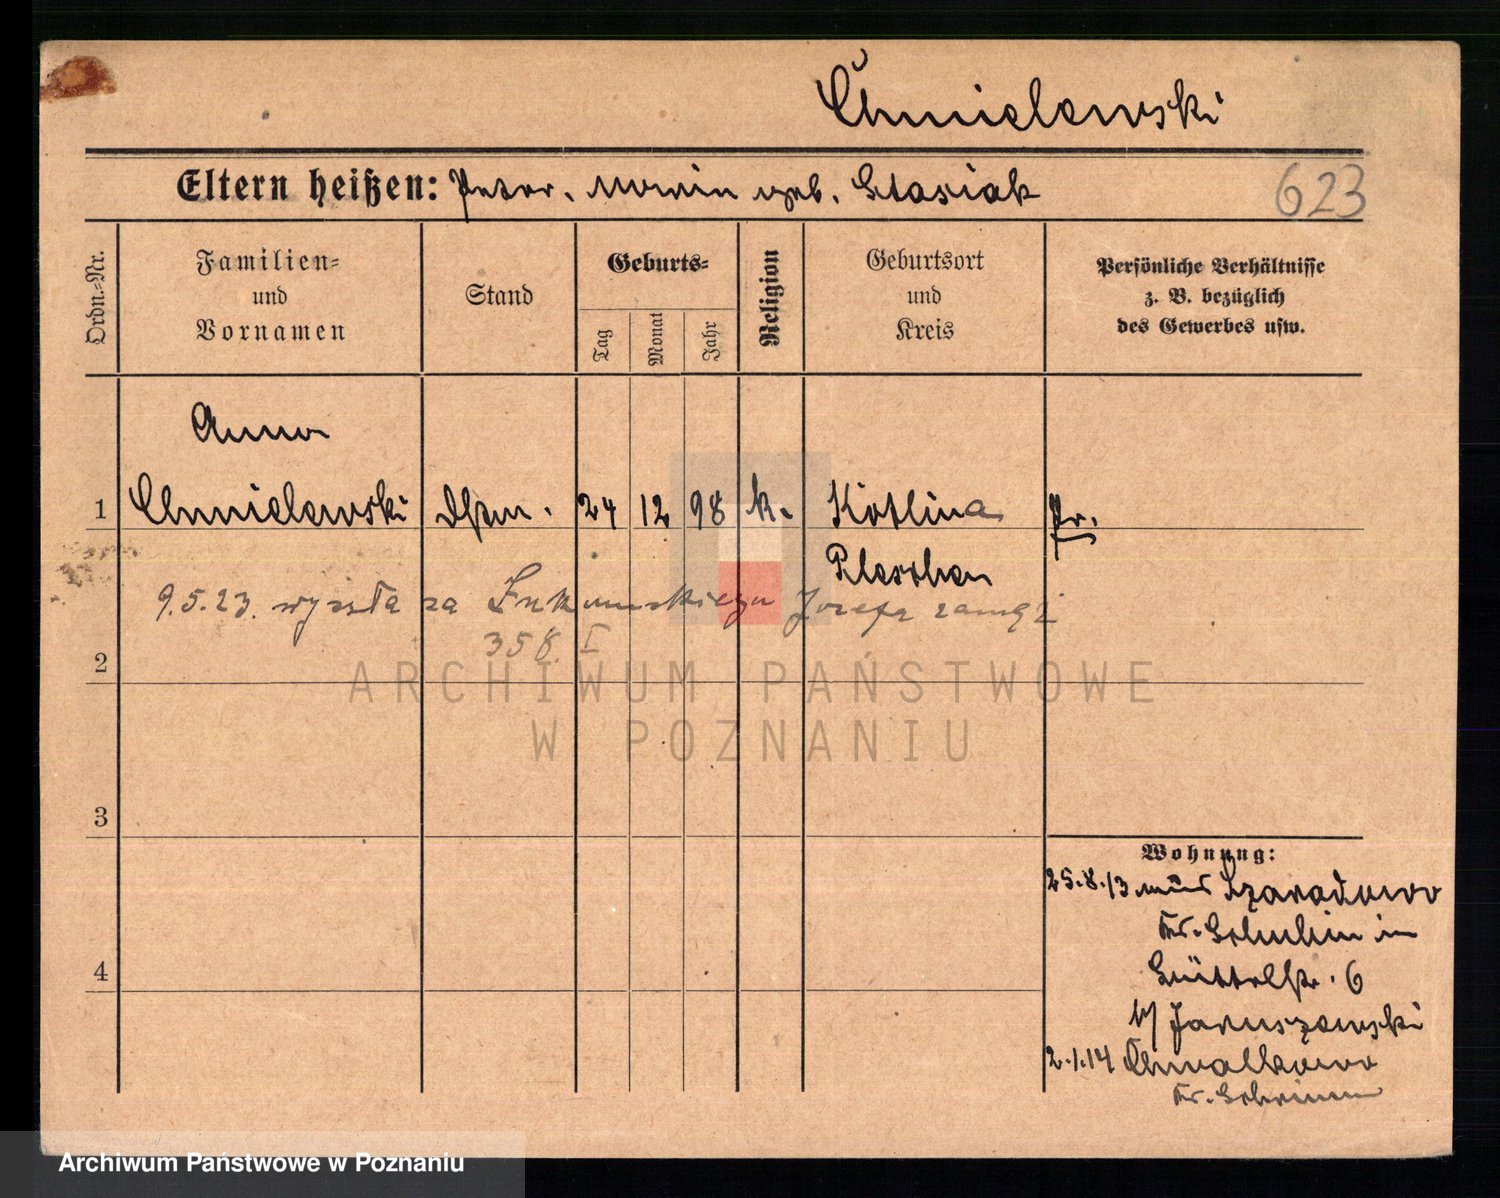 Chmielewski
Eltern heißen: Peter. Maria geb. Stasiak
623
Ordn.=Nr.
Familien=
und
Vornamen
Stand
Geburts=
Tag
Monat
Jahr
Religion
Geburtsort
und
Kreis
Persönliche Verhältnisse
z. B. bezüglich
des Gewerbes usw.
Anna
1 Chmielewski 24 12 98 k. Kotlina Pr.
Pleschen
9.5.23. wyszła za Józefa zamęż
358. I
2
3
4
Wohnung:
25.8.13 aus Szaradowo
Kr. Schubin in
6
b/ Januszewski
2.1.14 Chwalkowo
Kr. Schrimm
ARCHIWUM PAŃSTWOWE
W POZNANIU
Archiwum Państwowe w Poznaniu